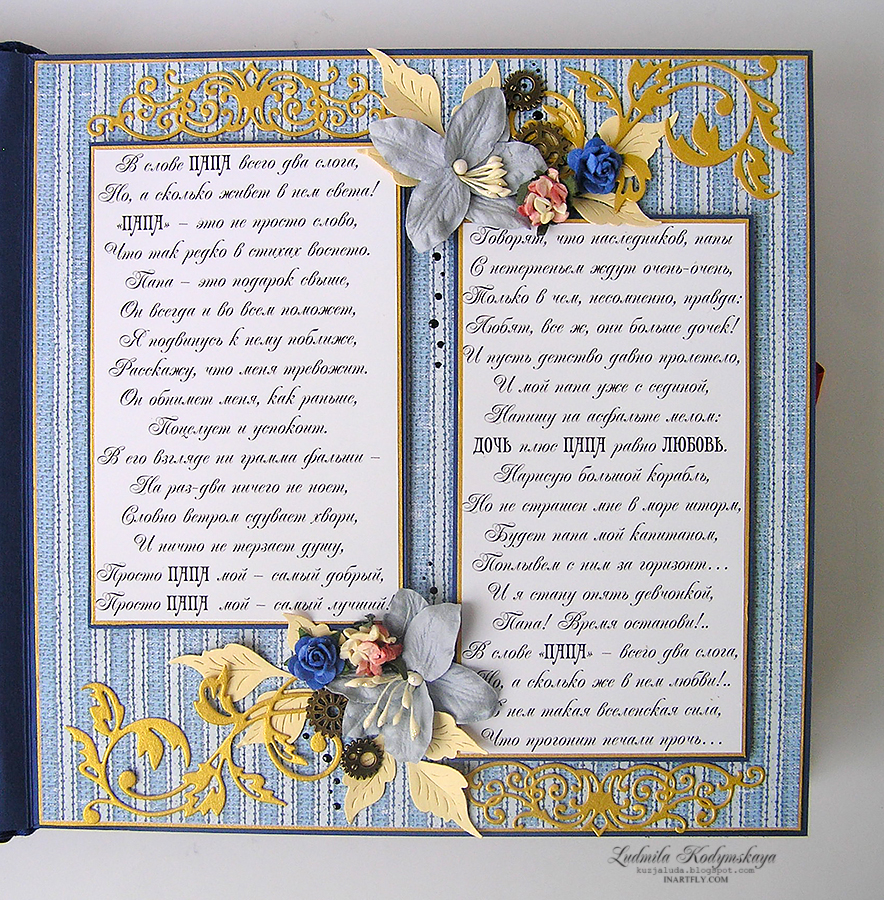 В слове ПАПА всего два слога,
Но, а сколько живет в нем света!
«ПАПА» – это не просто слово,
Что так редко в стихах воспето.
Папа – это подарок свыше,
Он всегда и во всем поможет,
Я подвинусь к нему поближе,
Расскажу, что меня тревожит.
Он обнимет меня, как раньше,
Поцелует и успокоит.
В его взгляде ни грамма фальши –
На раз-два ничего не ноет,
Словно ветром сдувает хвори,
И ничто не терзает душу,
Просто ПАПА мой – самый добрый,
Просто ПАПА мой – самый лучший!
Говорят, что наследников, папы
С нетерпеньем ждут очень-очень,
Только в чем, несомненно, правда:
Любят, все ж, они больше дочек!
И пусть детство давно пролетело,
И мой папа уже с сединой,
Напишу на асфальте мелом:
ДОЧЬ плюс ПАПА равно ЛЮБОВЬ.
Нарисую большой корабль,
Но не страшен мне в море шторм,
Будет папа мой капитаном,
Поплывем с ним за горизонт...
И я стану опять девчонкой,
Папа! Время останови!..
В слове «ПАПА» – всего два слога,
Но, а сколько же в нем любви!..
В нем такая вселенская сила,
Что прогонит печали прочь...
Ludmila Kodymskaya
kuzjaluda.blogspot.com
INARTFLY.COM